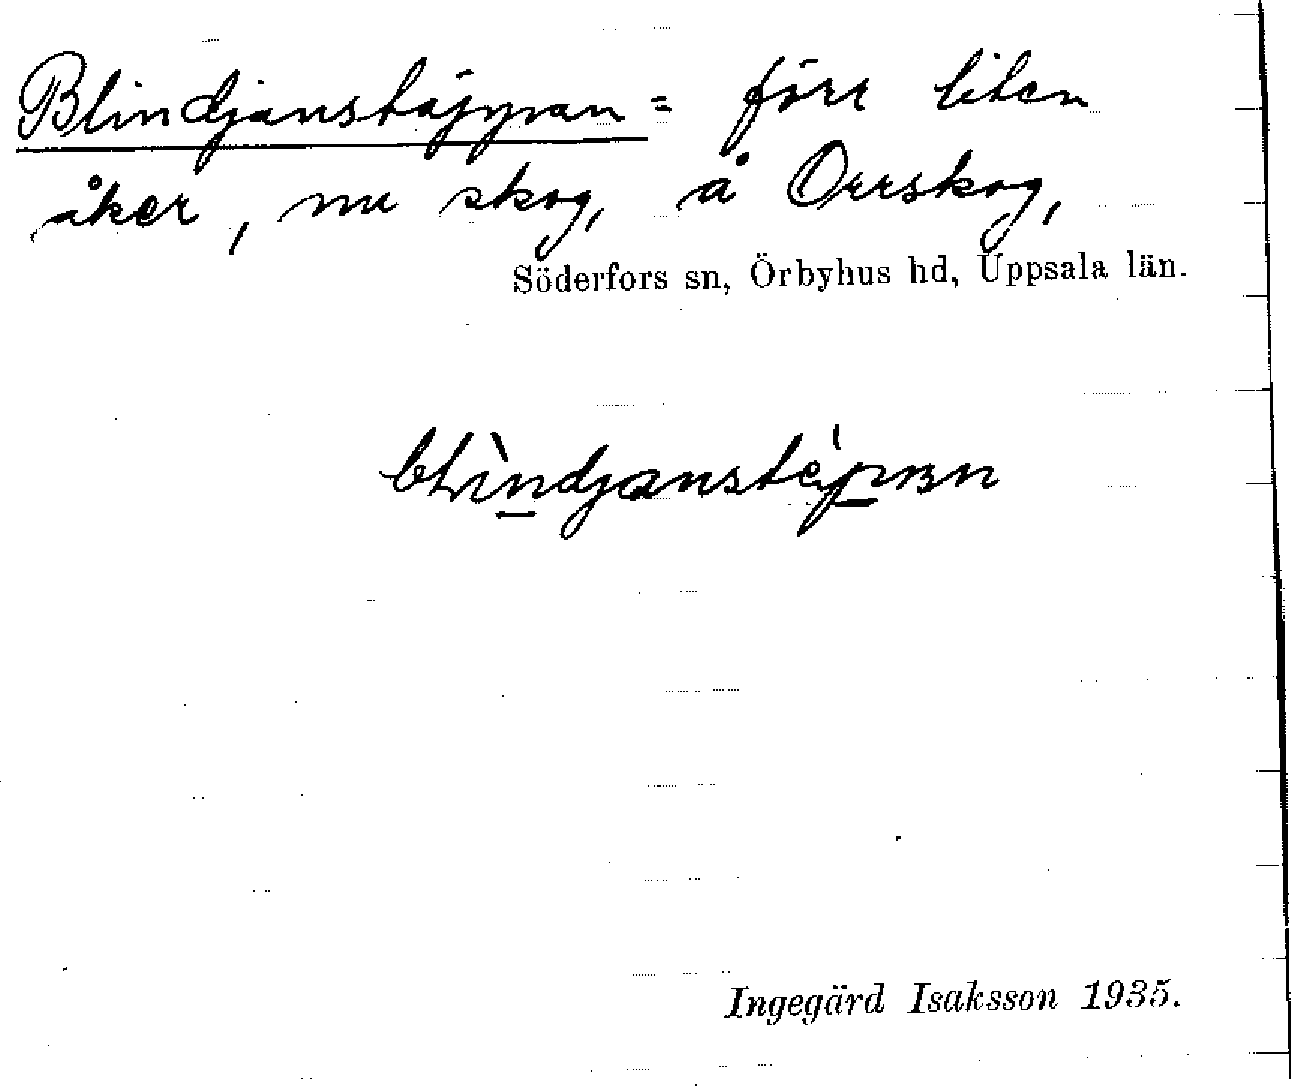 Blindjanstäppan = förr liten
åker, nu skog, å Orrskog,
Söderfors sn, Örbyhus hd, Uppsala län.
Ingegärd Isaksson 1935.